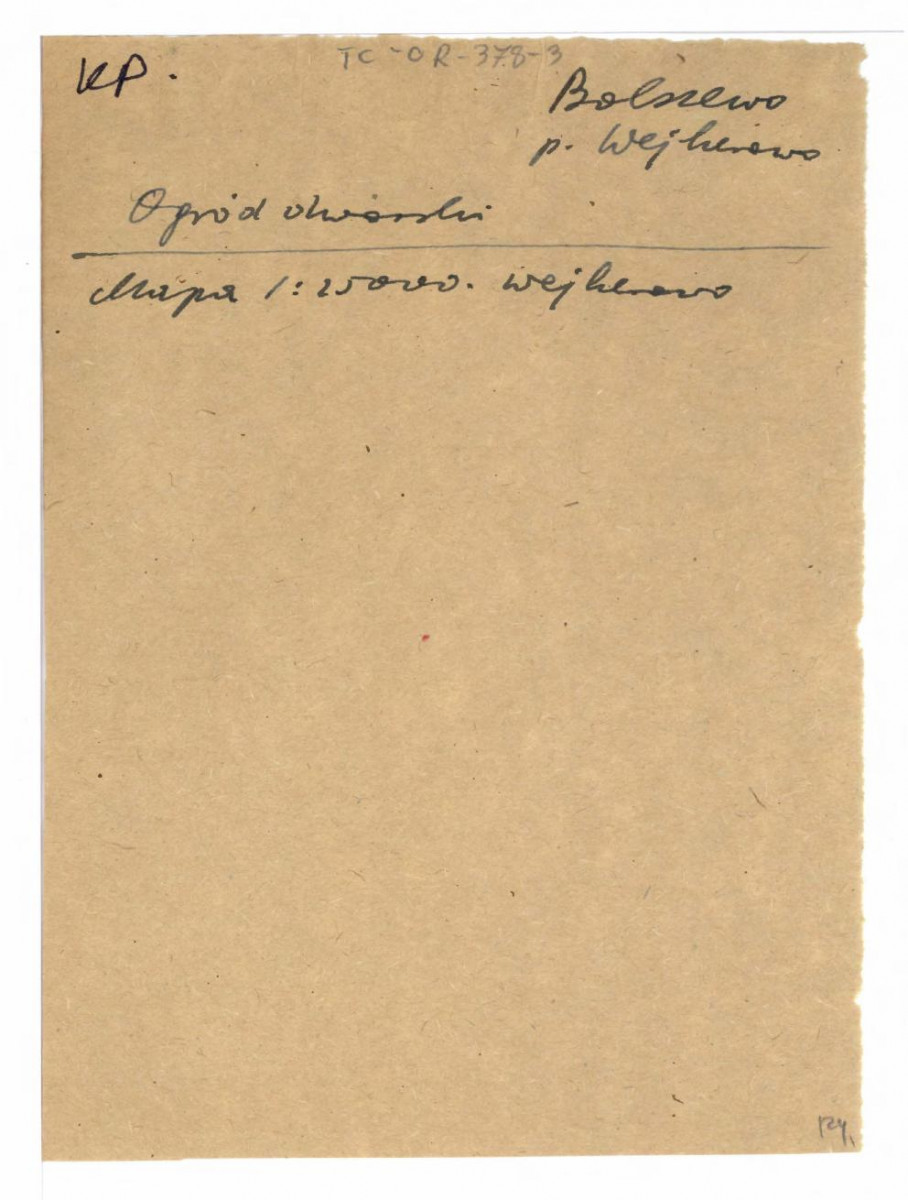 TC-OR-378-3
KP.
Bolszewo
p. Wejherowo
Ogród dworski
Mapa 1:25000. Wejherowo